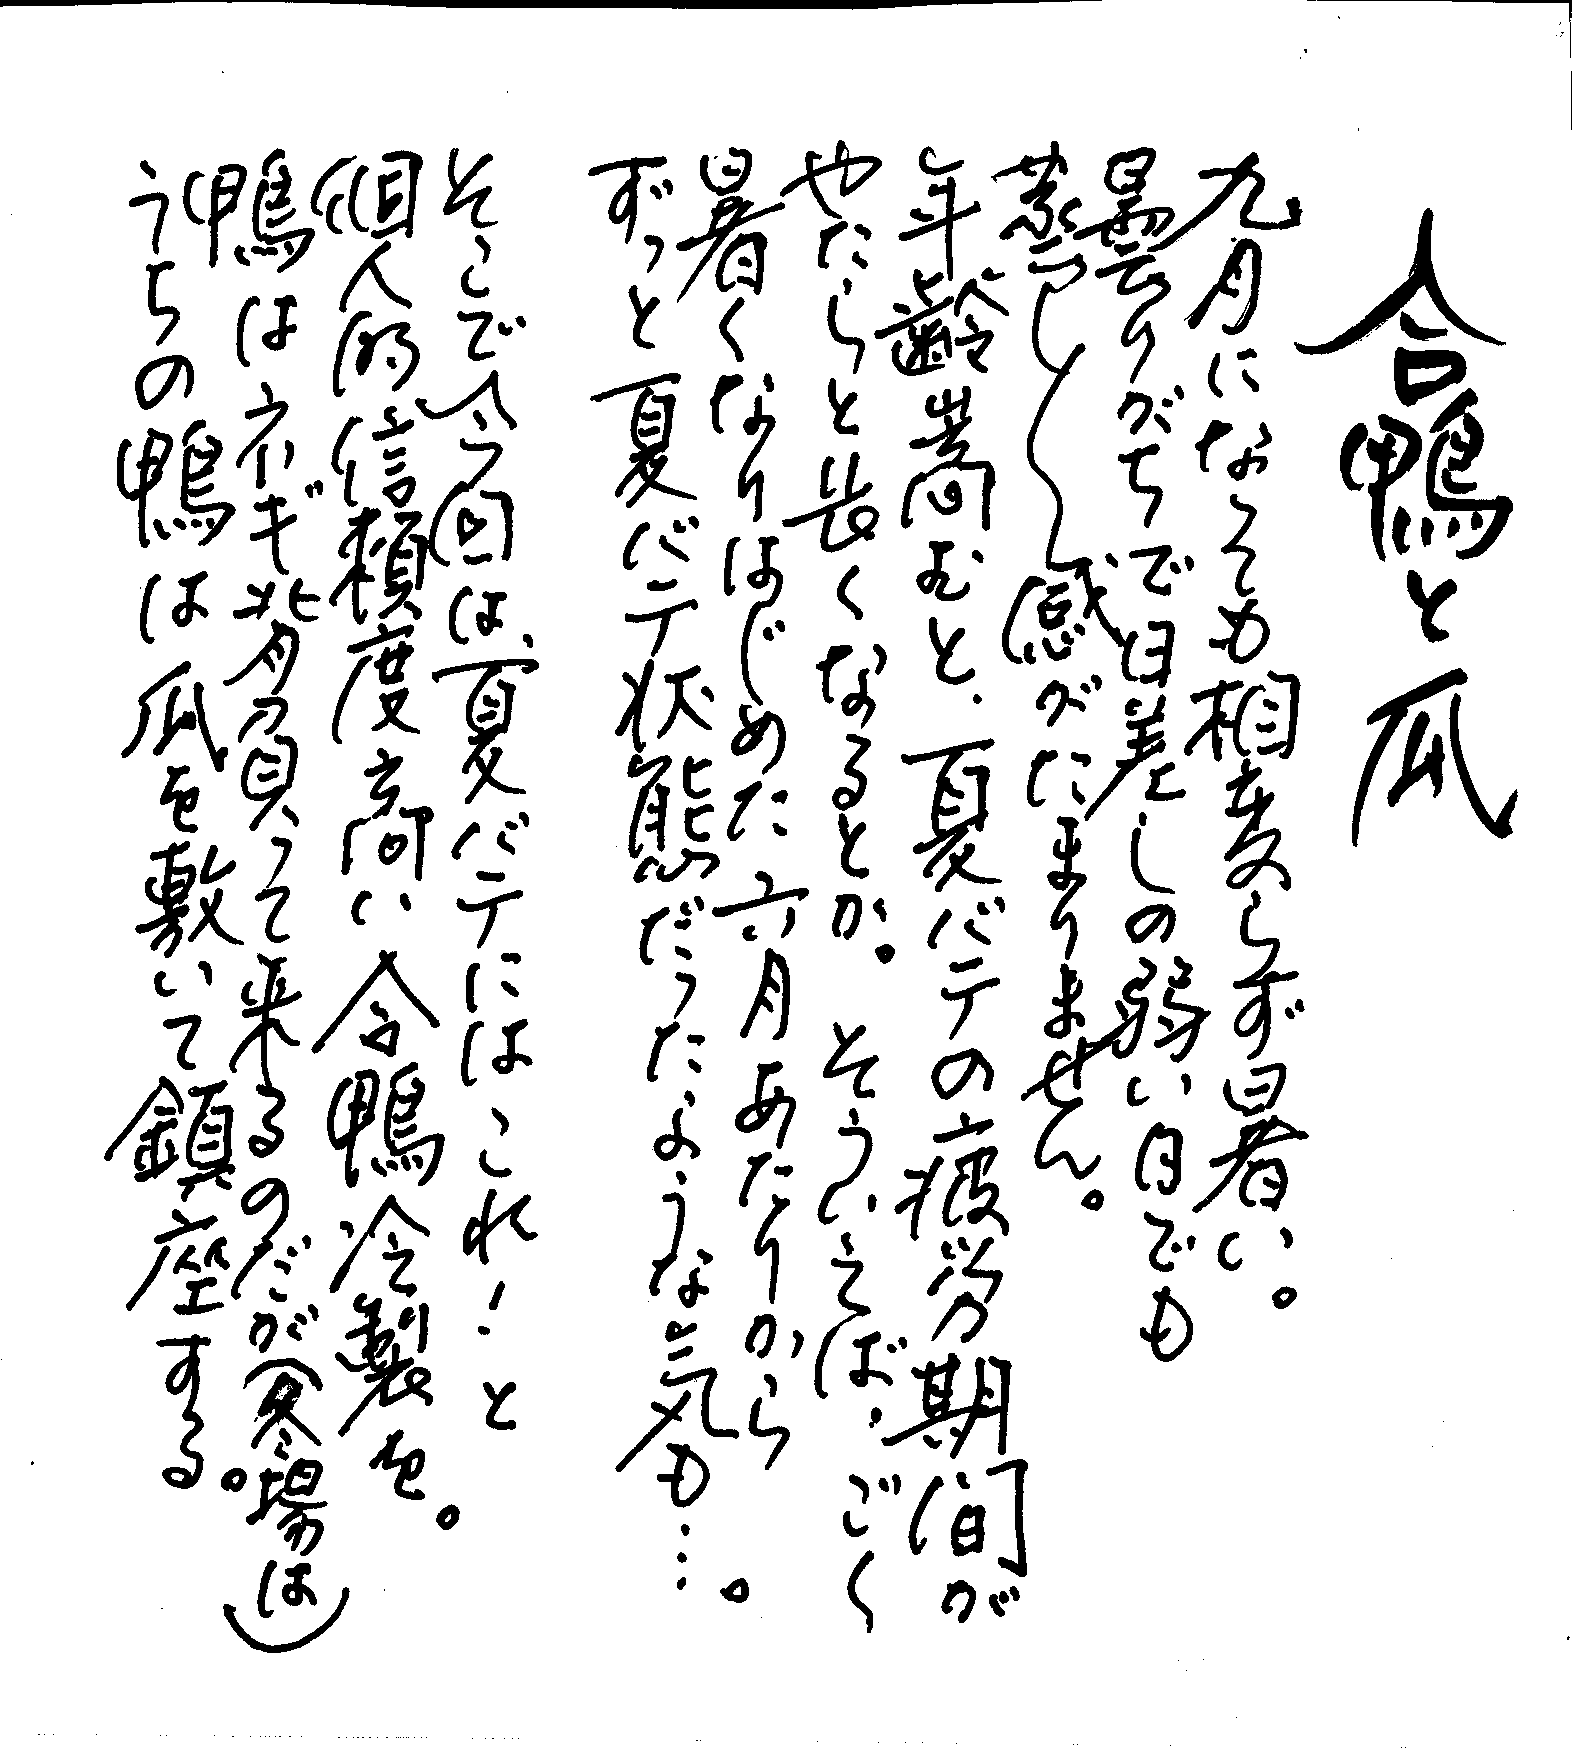 合鴨と瓜
九月になっても相変らず暑い。
曇りがちで日差しの弱い日でも
蒸し〱感がたまりません。
年齢嵩むと、夏バテの疲労期間が
やたらと長くなるとか。そういえば、ごく
暑くなりはじめた六月あたりから
ずっと夏バテ状態だったような気も…。
そこで今回は、夏バテにはこれ！と
個人的信頼度高い合鴨冷製を。
鴨はネギ背負って来るのだが（冬場は）
うちの鴨は瓜を敷いて鎮座する。